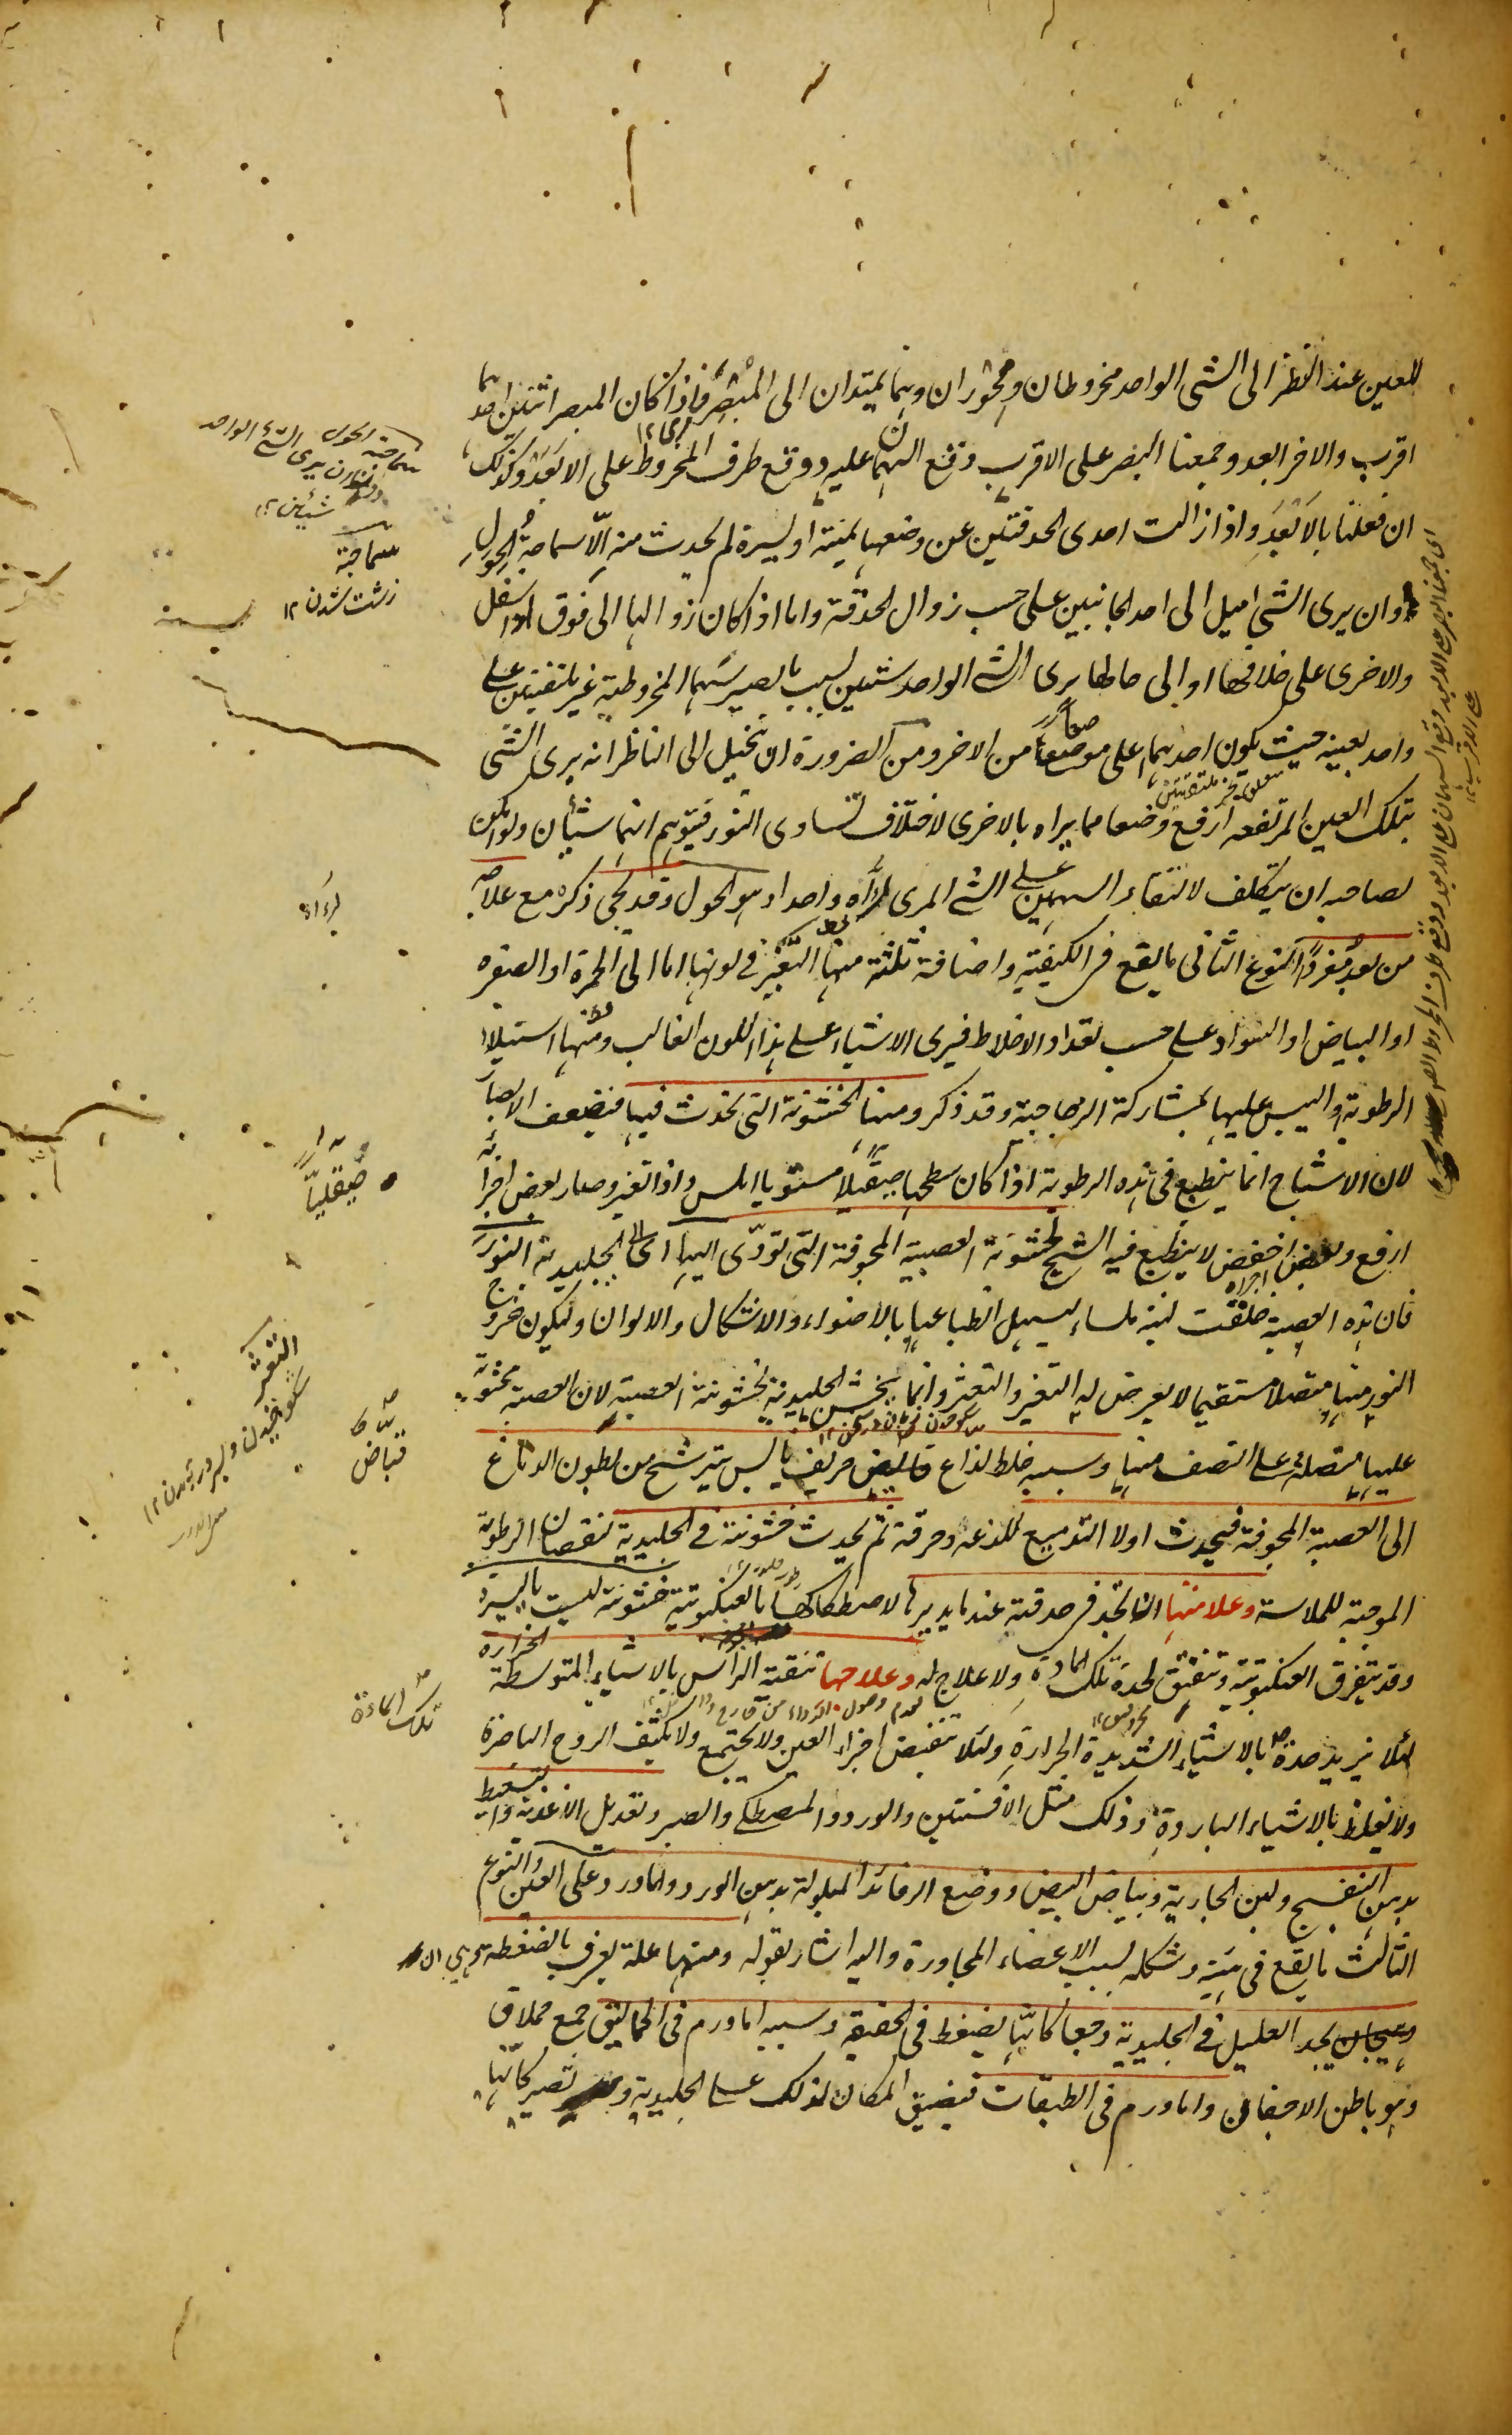 للعين عند النظر الى الشئ الواحد مخروطان ومحوران وهما يمتدان الى المبصر فاذا كان المبصر اثنين احدهما
اقرب والاخر ابعد وجمعنا البصر على الاقرب وقع السهمان عليه ووقع طرف المخروط على الابعد وكذلك
ان فعلنا بالابعد واذا زالت احدى الحدقتين عن وضعها يمنة او يسرة لم يحدث منه الا سماجة الحول
وان يرى الشئ اميل الى احد الجانبين على حسب زوال الحدقة واما اذا كان زوالها الى فوق او اسفل
والاخرى على خلافها او الى حالها يرى الشئ الواحد شيئين لسبب ما يصير سهما المخروطية غير ملتقيين على
واحد بعينه حيث يكون احدهما اعلى موضعا من الاخر ومن الضرورة ان يخيل الى الناظر انه يرى الشئ
بتلك العين المرتفعه ارفع وضعا مما يراه بالاخرى لاختلاف تساوى النور فيتوهم انهما شيئان ولو امكن
لصاحبه ان يتكلف لالتقاء السهمين على الشئ المرى لراه واحدا وهو الحول وقد يجئ ذكره مع علاجه
من بعد مفردا النوع الثانى ما يقع فى الكيفية واصنافه ثلثة منها التغير فى لونها اما الى الحمرة او الصفره
او البياض او السواد على حسب تعداد الاخلاط فيرى الاشياء على هذا اللون الغالب ومنها استيلاء
الرطوبة واليبس عليها بمشاركة الزجاجية وقد ذكر ومنها الخشونة التى تحدث فيها فيضعف الابصار
لان الاشباح انما ينطبع فى هذه الرطوبة اذا كان سطحها صقيلا مستويا املس واذا تغير وصار بعض اجزائه
ارفع وبعض اخفض لا ينطبع فيه الشبح لخشونة العصبية المجوفة التى تودى اليها اى الى الجليدية النور
فان هذه العصبة خلقت لينة ملساء ليسهل انطباعها بالاضواء والاشكال والالوان وليكون خروج
النور منها متصلا مستقيما لا يعرض له التغير والتعثر وانما يخشن الجليدية لخشونة العصبية لان العصبة محتوية
عليها متصلة على النصف منها وسببه خلط لذاع قابض حريف يابس يترشح من بطون الدماغ
الى العصبة المجوفة فيحدث اولا التدميع للذعه وحرقة ثم يحدث خشونة فى الجليدية لنقصان الرطوبة
الموجبة للملاسة وعلامتها ان يجد فى حدقته عند ما يديرها لاصطكاكها بالعنكبوتية خشونة ليست باليسيرة
وقد يتفرق العنكبوتية وتنفتق لحدة تلك المادة ولا علاج له وعلاجها تنقية الراس بالاشياء المتوسطة الحرارة
لئلا يزيد حدة بالاشياء الشديدة الحرارة ولئلا تنقبض اجزاء العين ولا يجتمع ولا يكثف الروح الباصرة
ولا يغلظ بالاشياء الباردة وذلك مثل الافسنتين والورد والمصطكى والصبر وتعديل الاغذية والتسعيط
بدهن البنفسج ولبن الجارية وبياض البيض ووضع الرفائد المبلولة بدهن الورد والماورد على العين والنوع
الثالث ما يقع فى هيئته وشكله لسبب الاعضاء المجاورة واليه اشار بقوله ومنها علة يعرف بالضغطة
يجد العليل فى الجليدية وجعا كانها يضغط فى الحقيقه وسببه اما ورم فى الحماليق جمع حملاق
وهو باطن الاجفان واما ورم فى الطبقات فيضيق المكان لذلك على الجليدية تصير كانها
سماجة الحول
ان يرى الشئ الواحد
شيئين ١٢
سماجة
زشت شدن ١٢
لراه
صيقليا
التعثر
قباض
تلك المادة